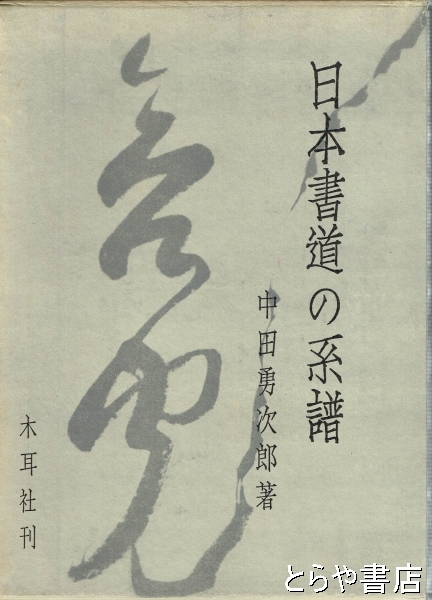 日本書道の系譜
中田勇次郎著
木耳社刊
とらや書店